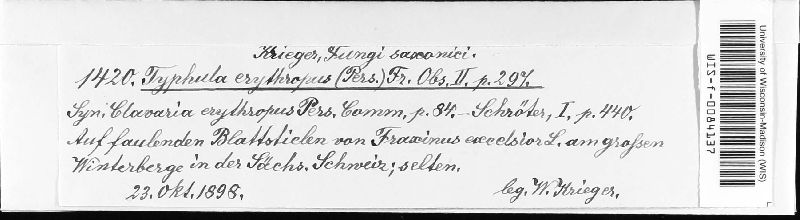 Krieger, Fungi saxonici.
1420. Typhula erythropus (Pers.) Fr. Obs. II. p. 297.
Syn. Clavaria erythropus Pers. Comm. p. 84. Schröter, I. p. 440.
Auf faulenden Blattstielen von Fraxinus excelsior L. am großen
Winterberge in der Sächs. Schweiz; selten.
23. Okt. 1898. leg. W. Krieger.
University of Wisconsin-Madison (WIS)
WIS-f-0084137